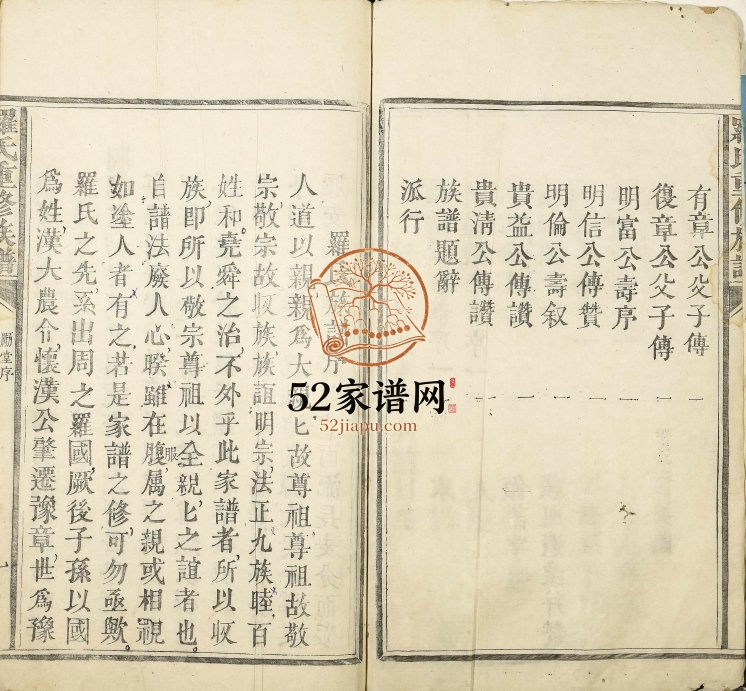 羅氏重修族譜
有章公父子傳 一
復章公父子傳 一
明富公壽序 一
明信公傳贊 一
明倫公壽叙 一
貴益公傳讚 一
貴清公傳讚
族譜題辭
派行
羅 族 序
人道以親親爲大 匕故尊祖尊祖故敬
宗敬宗故收族族誼明宗法正九族睦百
姓和堯舜之治不外乎此家譜者所以收
族即所以敬宗尊祖以全親匕之誼者也
自譜法廢人心暌雖在腹属之親或相視
服
如塗人者有之若是家譜之修可勿亟歟
羅氏之先系出周之羅國厥後子孫以國
爲姓漢大農令懷漢公肇遷豫章世爲豫
羅氏重修族譜
堂序
一
52家谱网
52jiapu.com